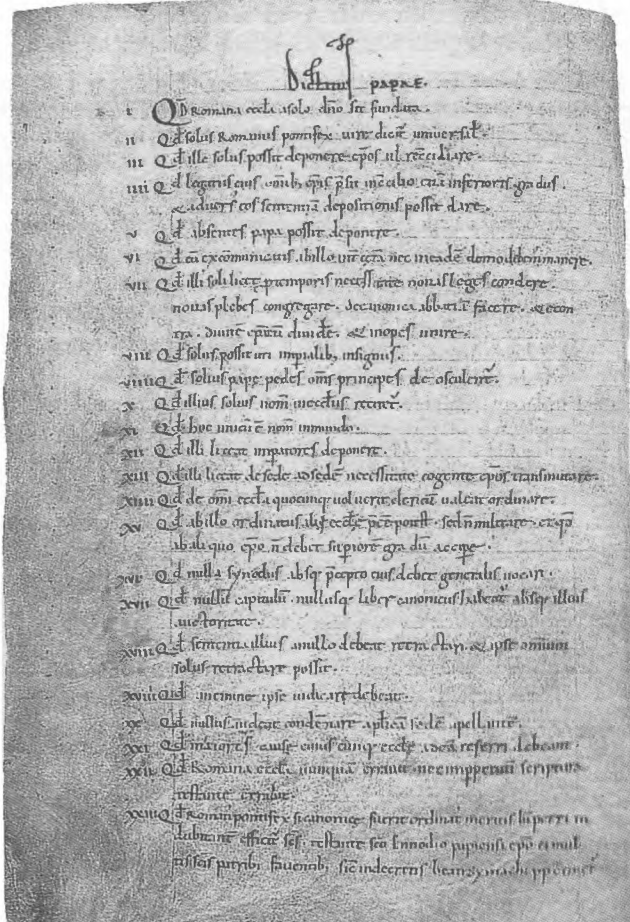 Dictatus papae.
i QD Romana eccla a solo dno sit fundata.
ii Qd solus Romanus pontifex iure dicat universal.
iii Qd ille solus possit deponere epos ul reconciliare.
iiii Qd legatus eius omnib; epis psit in concilio etiam inferioris gradus.
& adversus eos sententiam depositionis possit dare.
v Qd absentes papa possit deponere.
vi Qd cu excommunicatis ab illo int cetera nec in eade domo debem manere.
vii Qd illi soli licet p temporis necessitate novas leges condere.
novas plebes congregare. de canonica abbatia facere. & econ
tra. divite epatu dividere. & inopes unire.
viii Qd solus possit uti imperialib; insigniis.
viiii Qd solius pape pedes oms principes deosculent.
x Qd illius solius nom in ecclis recitet.
xi Qd hoc unicu e nom in mundo.
xii Qd illi liceat imperatores deponere.
xiii Qd illi liceat de sede ad sede necessitate cogente epos transmutare.
xiiii Qd de omi eccla quocunq; voluerit clericu valeat ordinare.
xv Qd ab illo ordinatus alii eccle pee potest. sed n militare. et qd
ab aliquo epo n debet superiore gradu accipe.
xvi Qd nulla synodus absq; pcepto eius debet generalis vocari.
xvii Qd nullu capitulum nullusq; liber canonicus habeat absq; illius
auctoritate.
xviii Qd sententia illius a nullo debeat retractari. & ipse omnium
solus retractare possit.
xviiii Qd a nemine ipse iudicare debeat.
xx Qd nullus audeat condemnare aplica sede apellante.
xxi Qd maiores cause cuiuscunq; eccle ad ea referri debeant.
xxii Qd Romana eccla nunqua erravit. nec imperpetuu scriptura
testante errabit.
xxiii Qd Roman pontifex si canonice fuerit ordinat meritis b petri in
dubitant efficit scs. testante sco Ennodio papiensi epo ei mul
tis scis patrib; faventib; sic in decretis beati symachi pp continet